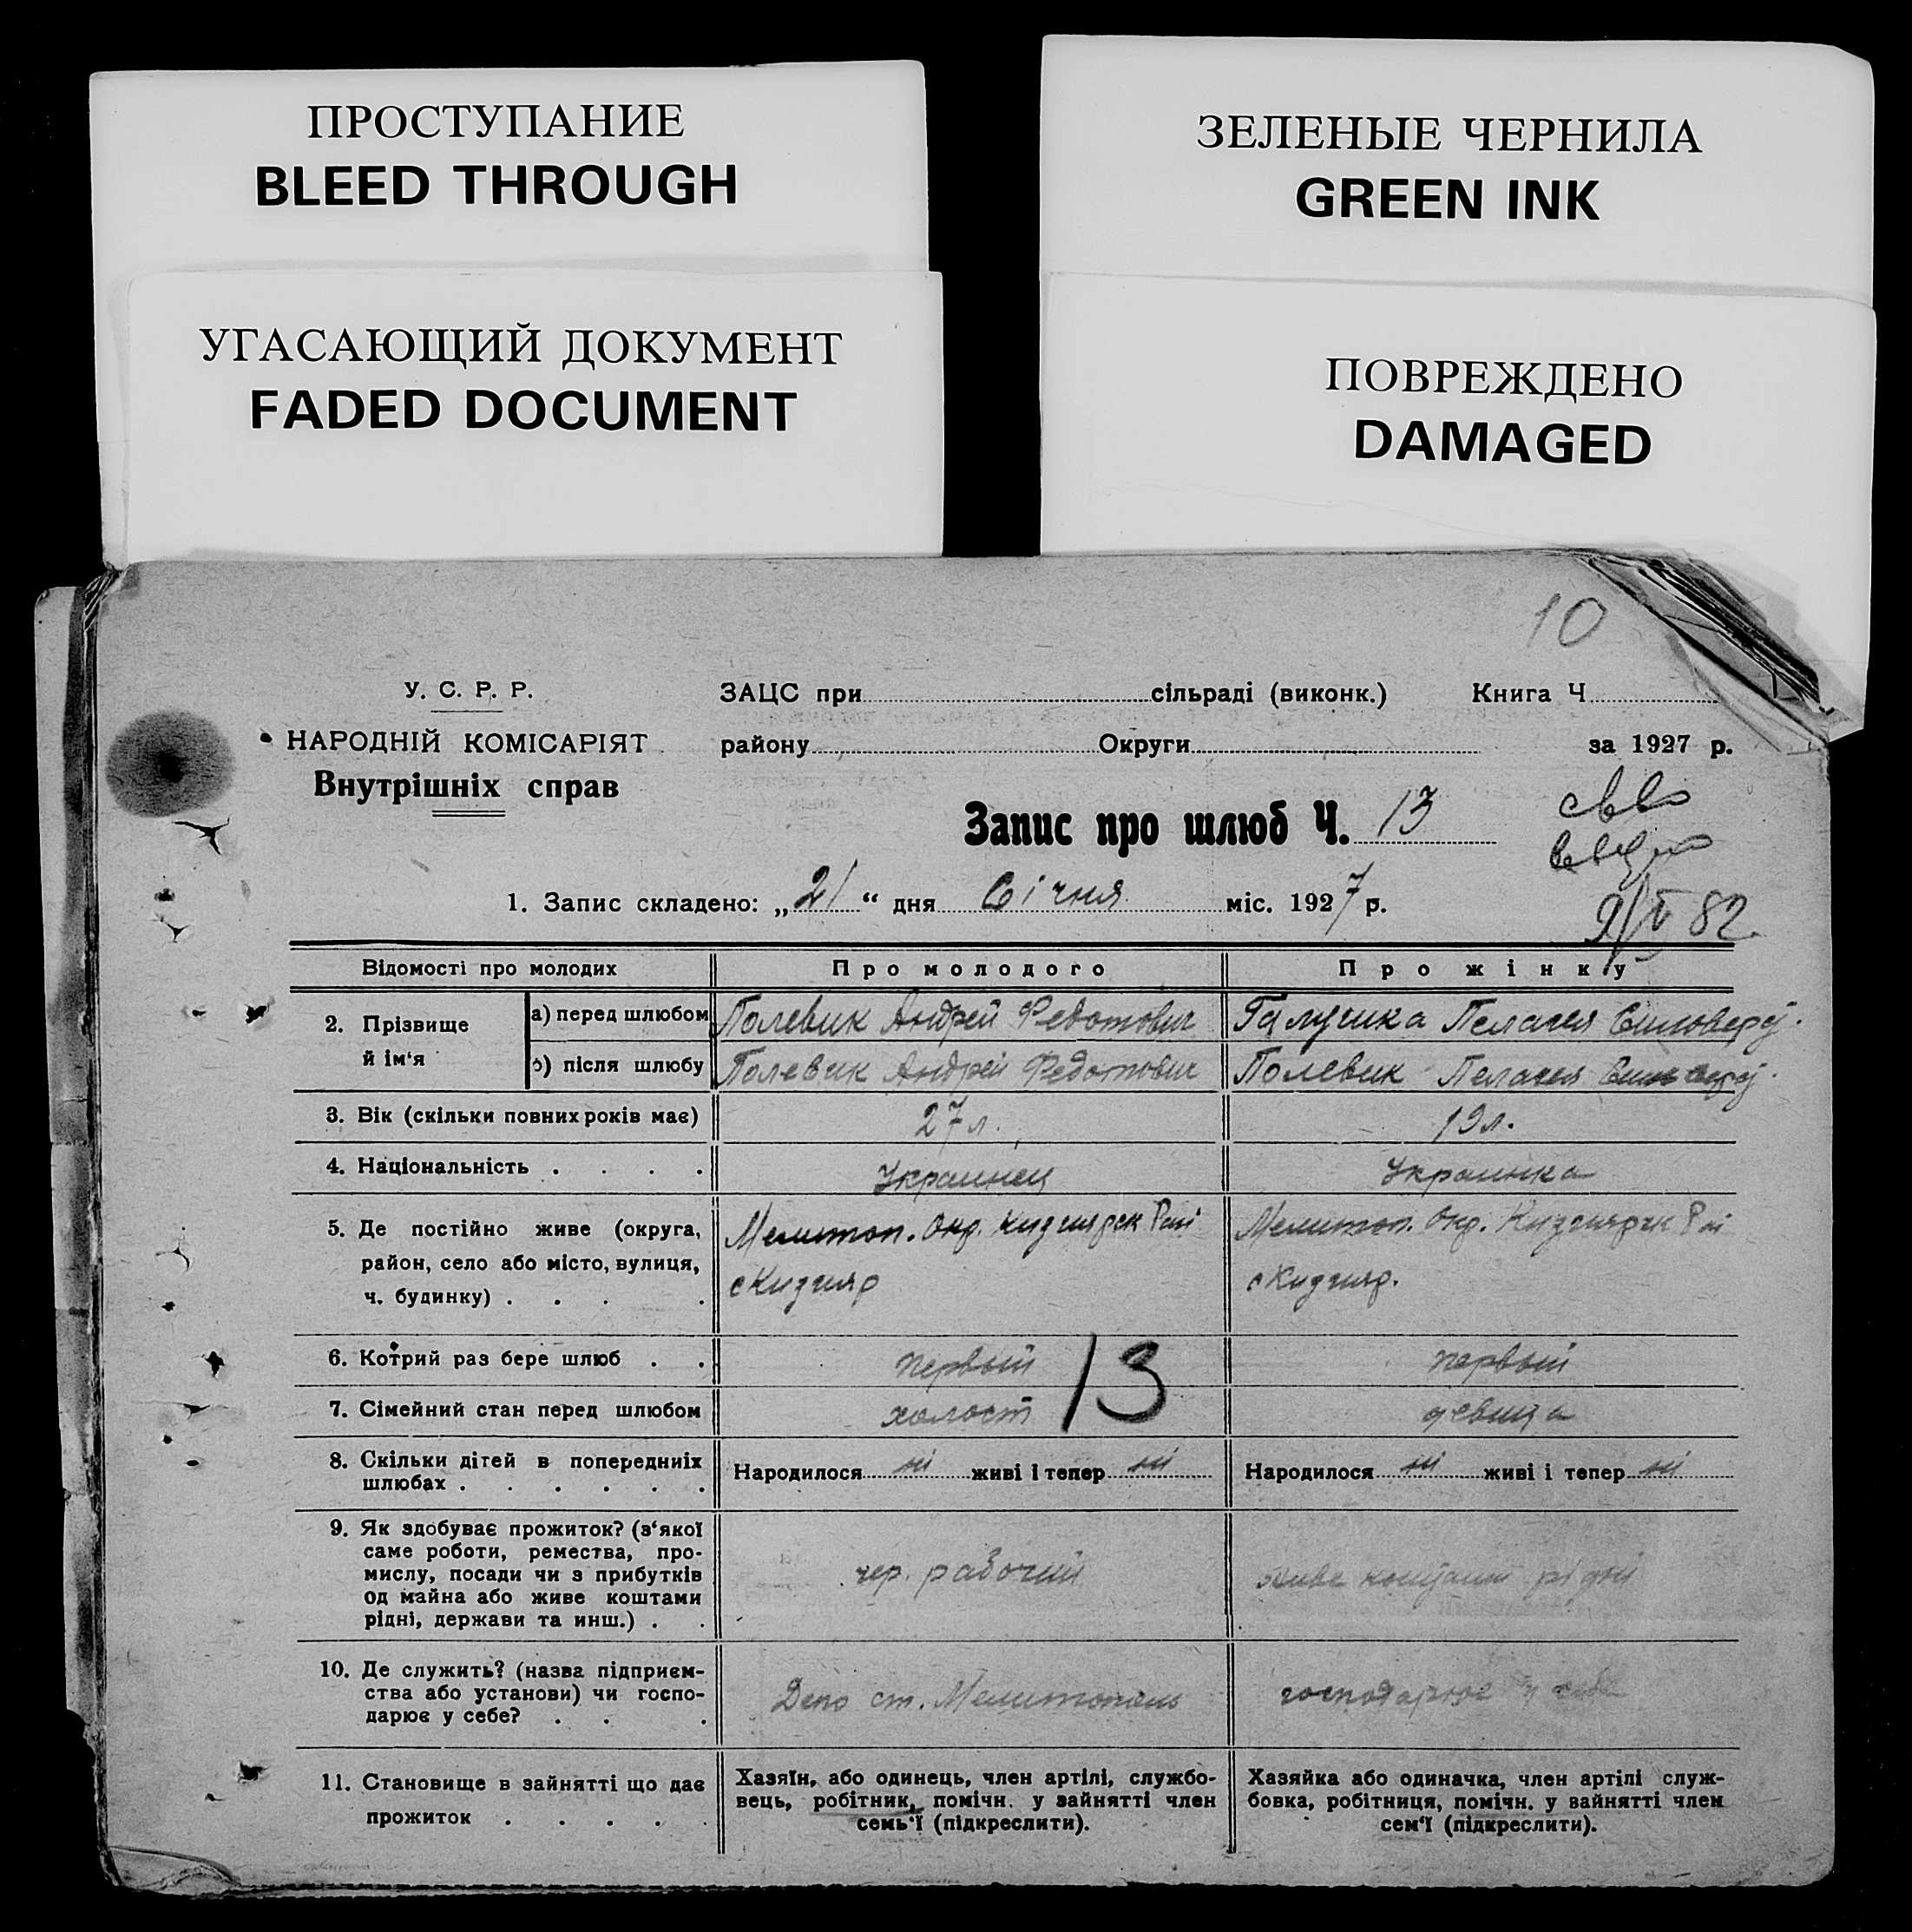 ПРОСТУПАНИЕ
BLEED THROUGH
ЗЕЛЕНЫЕ ЧЕРНИЛА
GREEN INK
УГАСАЮЩИЙ ДОКУМЕНТ
FADED DOCUMENT
ПОВРЕЖДЕНО
DAMAGED
10
У. С. Р. Р.
НАРОДНІЙ КОМІСАРІЯТ
Внутрішніх справ
ЗАЦС при сільраді (виконк.) Книга Ч
району Округи за 1927 р.
Запис про шлюб Ч. 13
9/V 82.
1. Запис складено: „21“ дня Січня міс. 1927 р.
Відомості про молодих Про молодого Про жінку
2. Прізвище й ім‘я
а) перед шлюбом Полевик Андрей Федотович Галушка Пелагея
б) після шлюбу Полевик Андрей Федотович Полевик Пелагея
3. Вік (скільки повних років має) 27 л. 19 л.
4. Національність . . . . Украинец Украинка
5. Де постійно живе (округа,
район, село або місто, вулиця,
ч. будинку) . . . .
Мелитоп. Окр. Кизиярск Рай
с Кизияр
Мелитоп. Окр. Кизиярск Рай
с Кизияр.
6. Котрий раз бере шлюб . . первый первый
13
7. Сімейний стан перед шлюбом холост девица
8. Скільки дітей в попередниіх
шлюбах . . . . . .
Народилося ні живі і тепер ні
Народилося ні живі і тепер ні
9. Як здобуває прожиток? (з‘якої
саме роботи, ремества, про-
мислу, посади чи з прибутків
од майна або живе коштами
рідні, держави та инш.) . .
чер. рабочий
живе коштами рідні
10. Де служить? (назва підприєм-
ства або установи) чи госпо-
дарює у себе? . . .
Депо ст. Мелитополь
господарює у себе
11. Становище в зайнятті що дає
прожиток . . . . .
Хазяїн, або одинець, член артілі, службо-
вець, робітник, помічн. у зайнятті член
семь‘ї (підкреслити).
Хазяйка або одиначка, член артілі служ-
бовка, робітниця, помічн. у зайнятті член
сем‘ї (підкреслити).